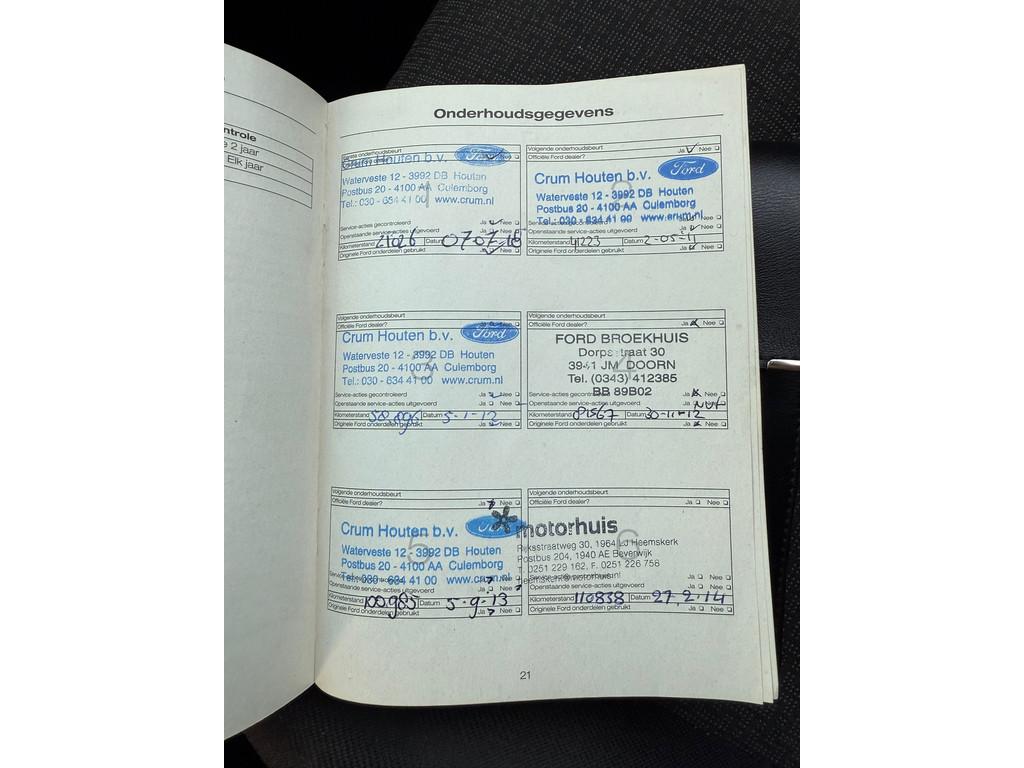 ntrole
e 2 jaar
Elk jaar
Onderhoudsgegevens
onderhoudsbeurt
Nee
Crum Houten b.v. Ford
Waterveste 12 - 3992 DB Houten
Postbus 20 - 4100 AA Culemborg
Tel.: 030 - 634 41 00 www.crum.nl
1
Service-acties gecontroleerd Ja Nee
Openstaande service-acties uitgevoerd Ja Nee
Kilometerstand 21026 Datum 07-07-10
Originele Ford onderdelen gebruikt Ja Nee
Volgende onderhoudsbeurt
Officiële Ford dealer? Ja Nee
Crum Houten b.v. Ford
Waterveste 12 - 3992 DB Houten
Postbus 20 - 4100 AA Culemborg
Tel.: 030 - 634 41 00 www.crum.nl
2
Service-acties gecontroleerd Ja Nee
Openstaande service-acties uitgevoerd Ja Nee
Kilometerstand 41223 Datum 2-05-11
Originele Ford onderdelen gebruikt Ja Nee
Volgende onderhoudsbeurt
Officiële Ford dealer? Ja Nee
Crum Houten b.v. Ford
Waterveste 12 - 3992 DB Houten
Postbus 20 - 4100 AA Culemborg
Tel.: 030 - 634 41 00 www.crum.nl
3
Service-acties gecontroleerd Ja Nee
Openstaande service-acties uitgevoerd Ja Nee
Kilometerstand 58.896 Datum 5-1-12
Originele Ford onderdelen gebruikt Ja Nee
Volgende onderhoudsbeurt
Officiële Ford dealer? Ja Nee
FORD BROEKHUIS
Dorpsstraat 30
3941 JM DOORN
Tel. (0343) 412385
BB 89B02
4
Service-acties gecontroleerd Ja Nee
Openstaande service-acties uitgevoerd Ja NVT
Kilometerstand 81567 Datum 30-11-12
Originele Ford onderdelen gebruikt Ja Nee
Volgende onderhoudsbeurt
Officiële Ford dealer? Ja Nee
Crum Houten b.v. Ford
Waterveste 12 - 3992 DB Houten
Postbus 20 - 4100 AA Culemborg
Tel.: 030 - 634 41 00 www.crum.nl
5
Openstaande service-acties uitgevoerd Ja Nee
Kilometerstand 100985 Datum 5-9-13
Originele Ford onderdelen gebruikt Ja Nee
Volgende onderhoudsbeurt
Officiële Ford dealer? Ja Nee
motorhuis
Rijksstraatweg 30, 1964 LJ Heemskerk
Postbus 204, 1940 AE Beverwijk
T. 0251 229 162, F. 0251 226 758
6
Service-acties gecontroleerd Ja Nee
Openstaande service-acties uitgevoerd Ja Nee
Kilometerstand 110838 Datum 27.2.14
Originele Ford onderdelen gebruikt Ja Nee
21